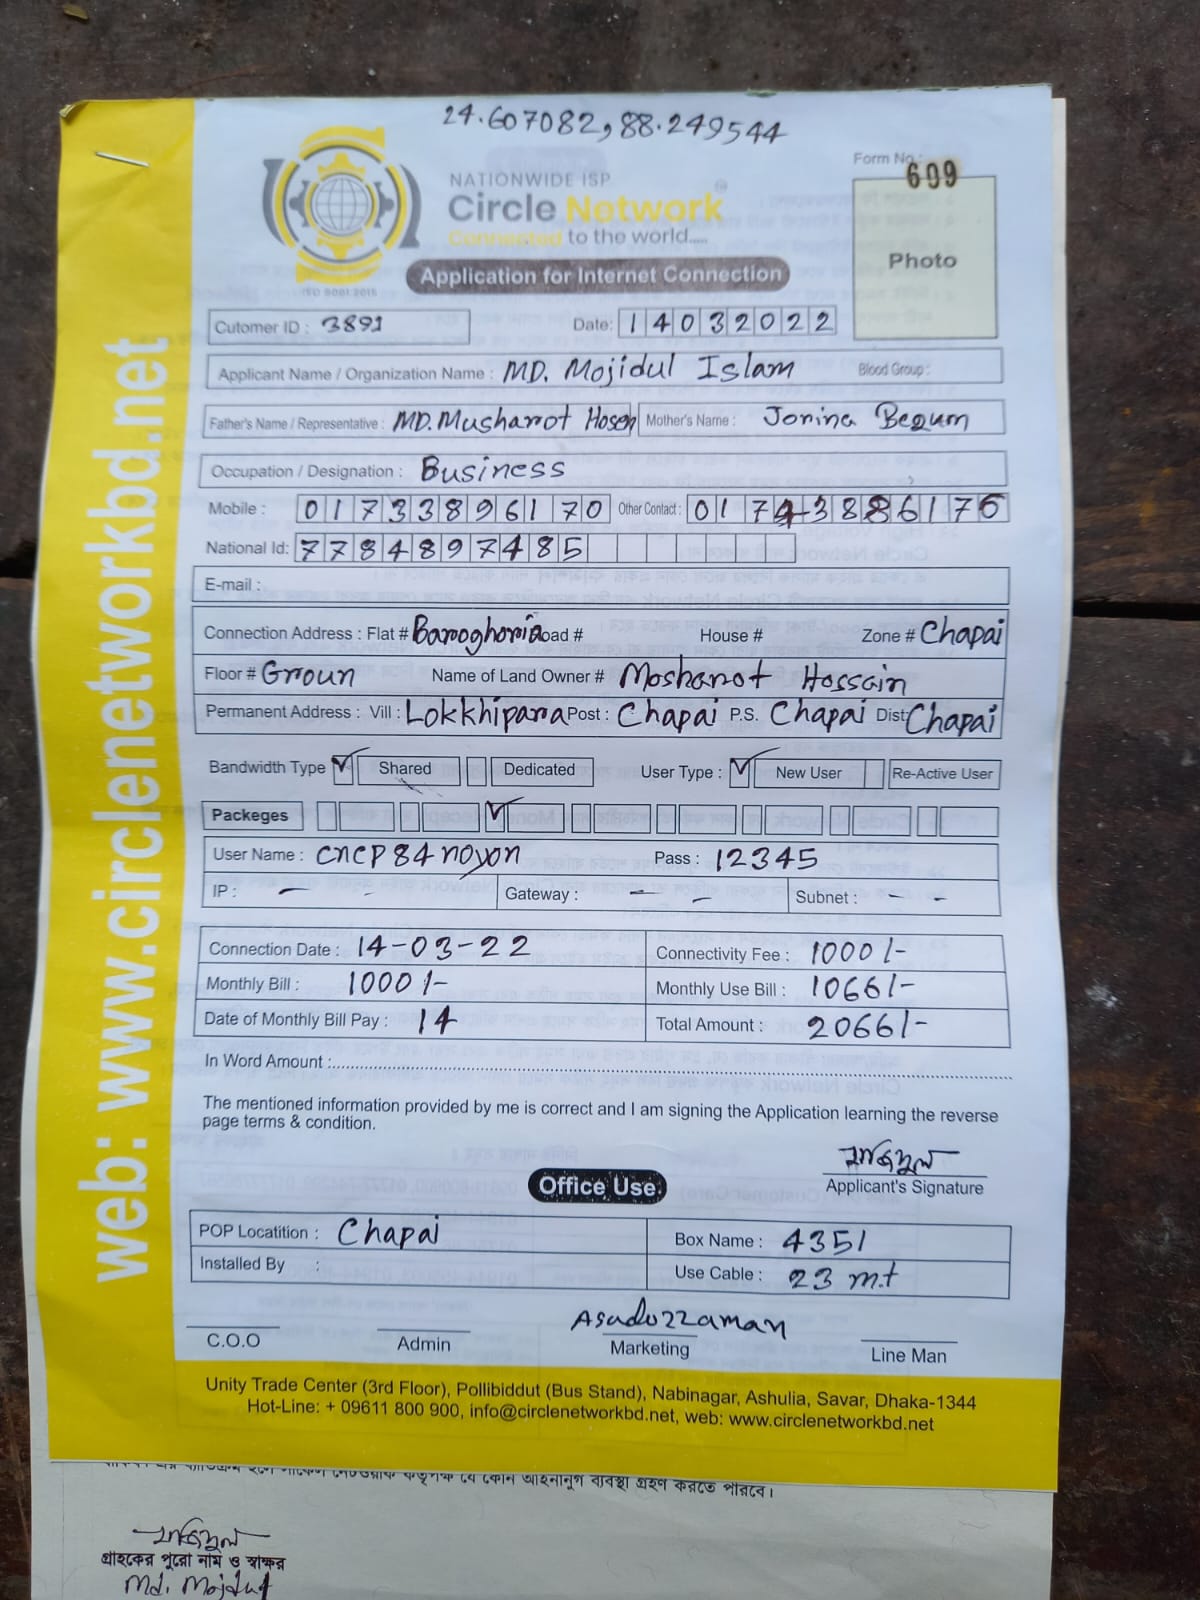 24.607082,88.249544
Form No.: 609
NATIONWIDE ISP
Circle Network
Connected to the world.....
ISO 9001:2015
Photo
Application for Internet Connection
Cutomer ID : 3891 Date: 14032022
Applicant Name / Organization Name : MD. Mojidul Islam Blood Group :
Father's Name / Representative : MD. Musharrot Hosen Mother's Name : Jonina Begum
Occupation / Designation : Business
Mobile : 01733896170 Other Contact : 01743886176
National Id: 7784897485
E-mail :
Connection Address : Flat # Baroghoria Road # House # Zone # Chapai
Floor # Groun Name of Land Owner # Mosharot Hossain
Permanent Address : Vill : Lokkhipara Post : Chapai P.S. Chapai Dist: Chapai
Bandwidth Type ✓ Shared Dedicated User Type : ✓ New User Re-Active User
Packeges ✓
User Name : cncp84noyon Pass : 12345
IP : — Gateway : — – Subnet : - -
Connection Date : 14-03-22 Connectivity Fee : 1000/-
Monthly Bill : 1000/- Monthly Use Bill : 1066/-
Date of Monthly Bill Pay : 14 Total Amount : 2066/-
In Word Amount :
The mentioned information provided by me is correct and I am signing the Application learning the reverse
page terms & condition.
মজিদুল
Applicant's Signature
Office Use.
POP Locatition : Chapai Box Name : 4351
Installed By : Use Cable : 23 m.t
Asaduzzaman
C.O.O Admin Marketing Line Man
Unity Trade Center (3rd Floor), Pollibiddut (Bus Stand), Nabinagar, Ashulia, Savar, Dhaka-1344
Hot-Line: + 09611 800 900, info@circlenetworkbd.net, web: www.circlenetworkbd.net
web: www.circlenetworkbd.net
যে কোন আইনানুগ ব্যবস্থা গ্রহণ করতে পারবে।
মজিদুল
গ্রাহকের পুরো নাম ও স্বাক্ষর
Md. Mojdul